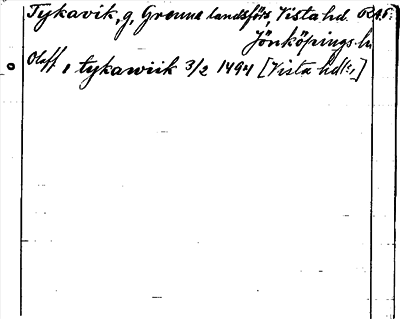 Tykavik, g, Grenna landsförs, Vista hd. RAP.
Jönköpings-län
Olaff i tykawiik 3/2 1494 [Vista hd]